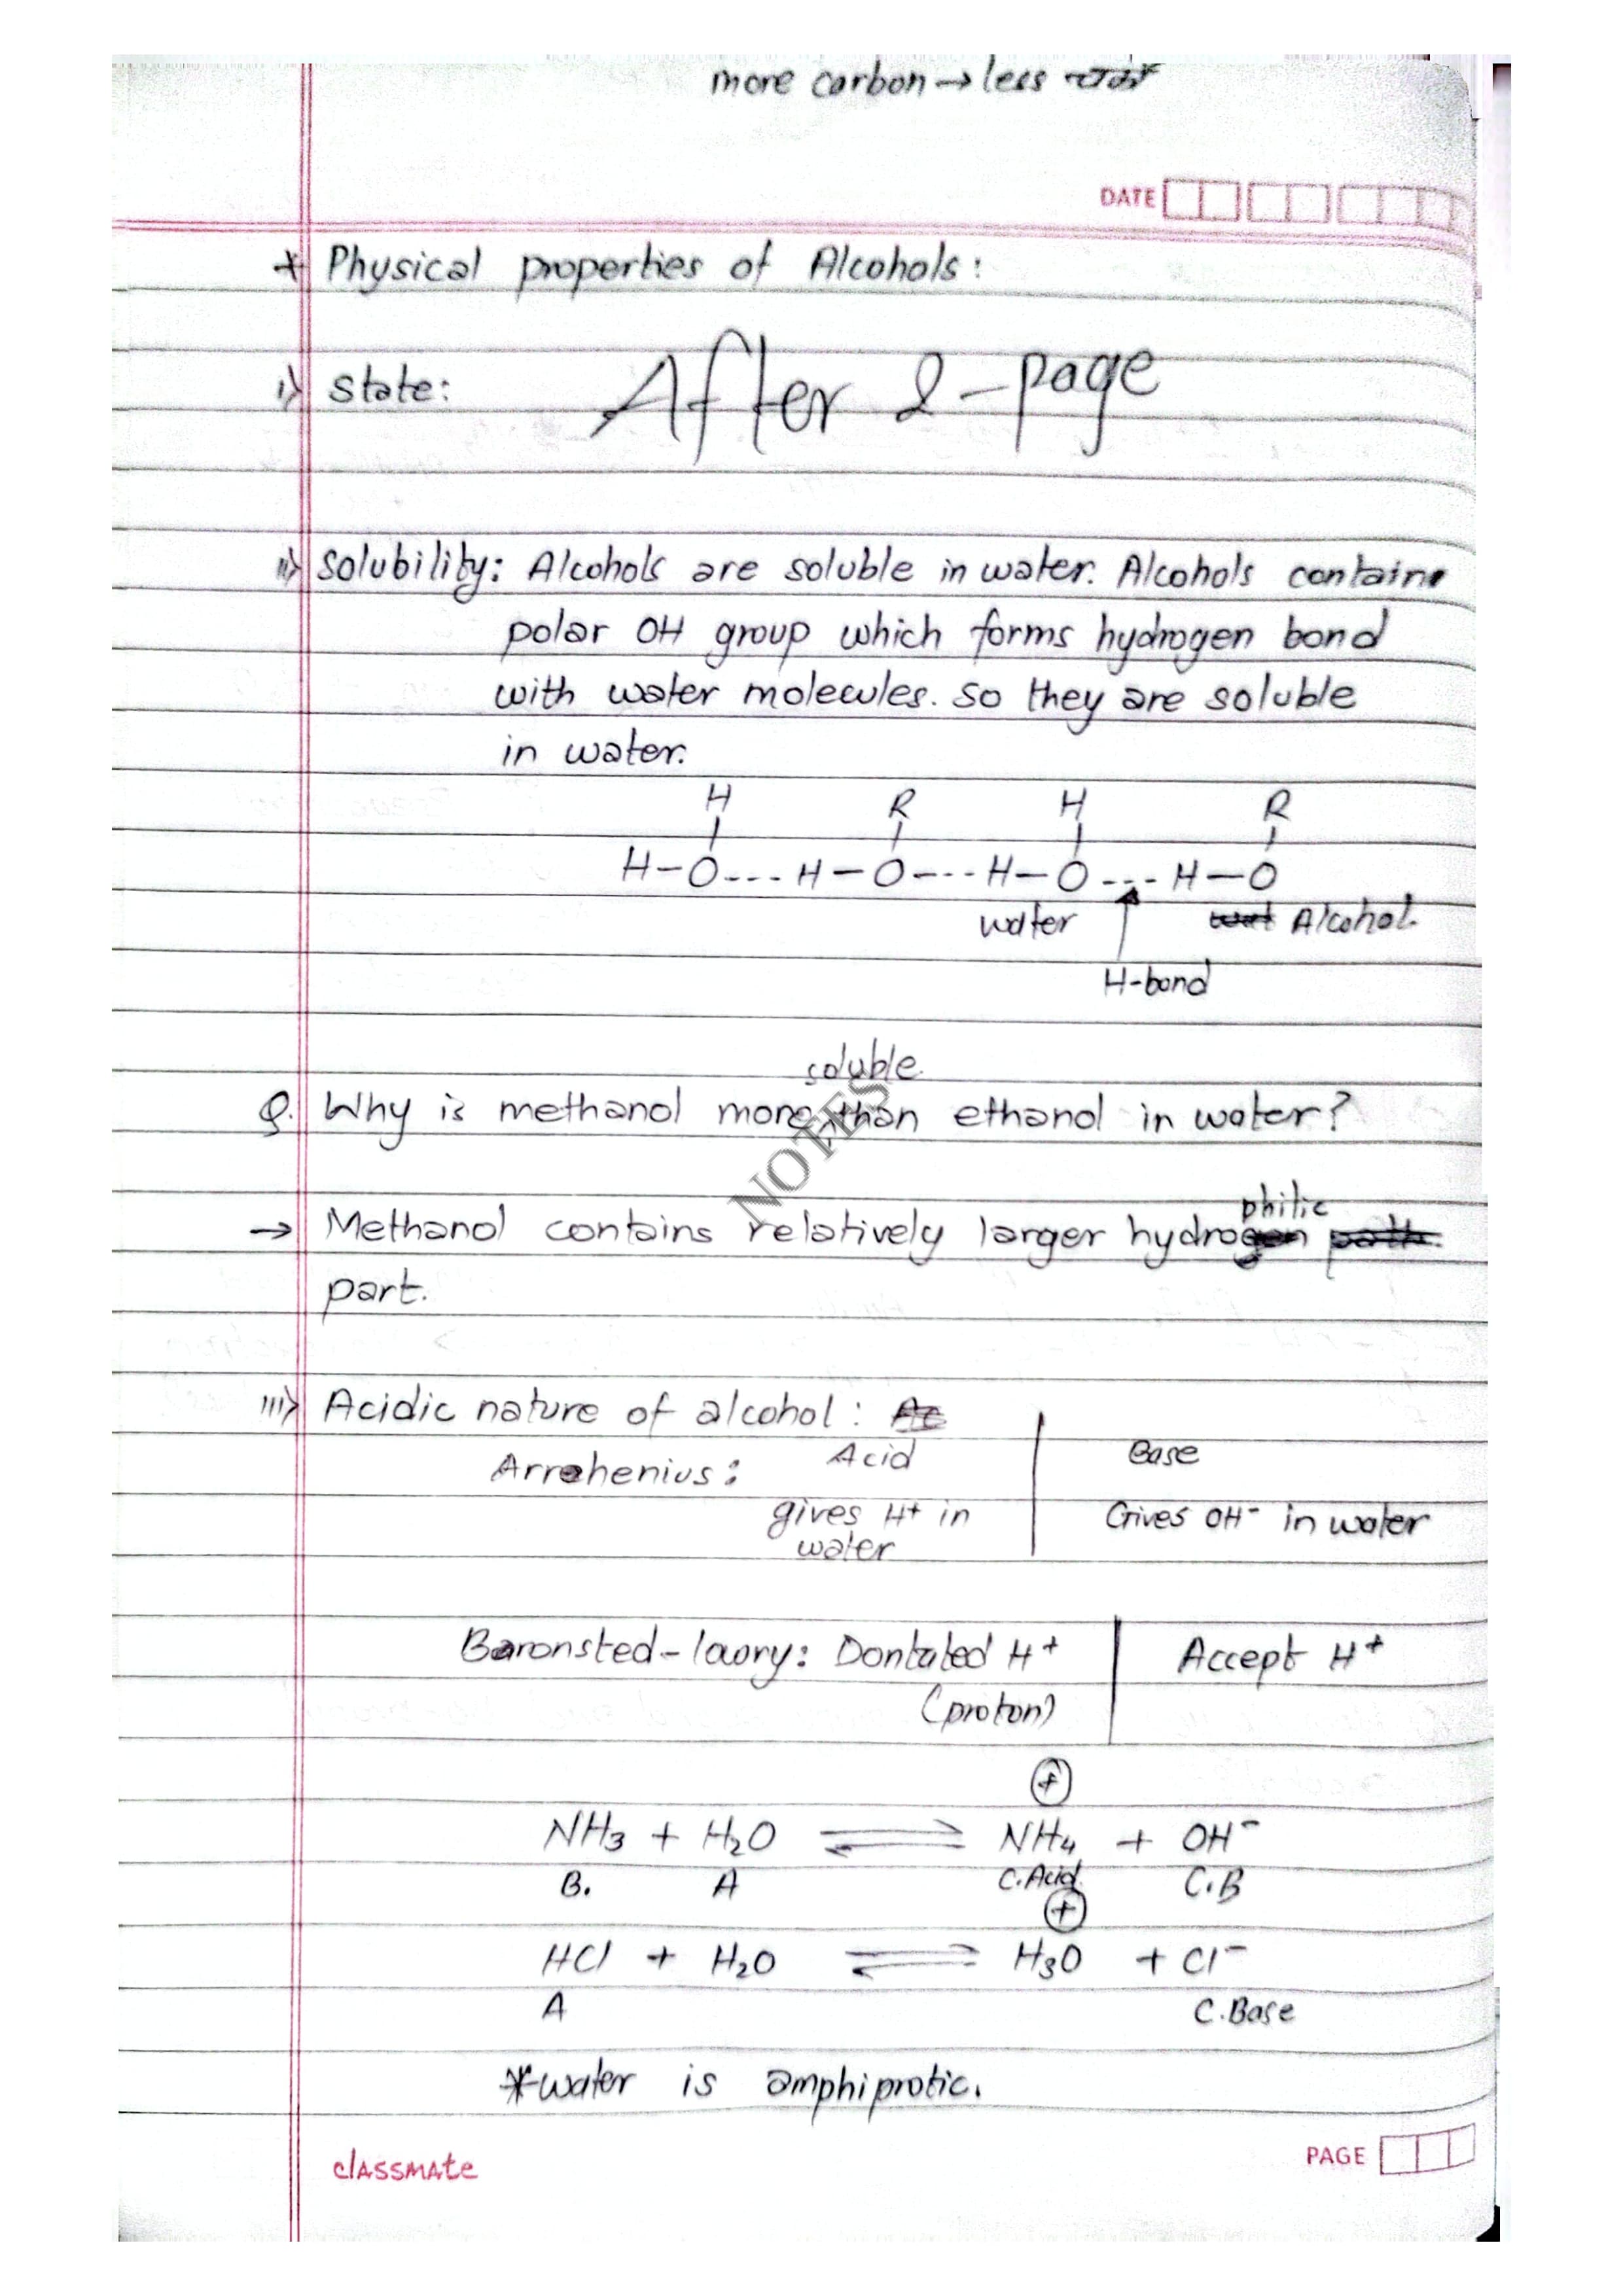 more carbon → less
DATE
* Physical properties of Alcohols:
i) State: After 2-page
ii) Solubility: Alcohols are soluble in water. Alcohols contain
polar OH group which forms hydrogen bond
with water molecules. So they are soluble
in water.
H R H R
H-O---H-O---H-O---H-O
water Alcohol.
H-bond
soluble
Q. Why is methanol more than ethanol in water?
NOTES
philic
→ Methanol contains relatively larger hydro
part.
iii) Acidic nature of alcohol:
Arrehenius: Acid | Base
gives H+ in | Gives OH- in water
water
Baronsted-lowry: Dontated H+ | Accept H+
(proton)
+
NH3 + H2O ⇌ NH4 + OH-
B. A C.Acid C.B
+
HCl + H2O ⇌ H3O + Cl-
A C.Base
*water is amphiprotic.
classmate
PAGE